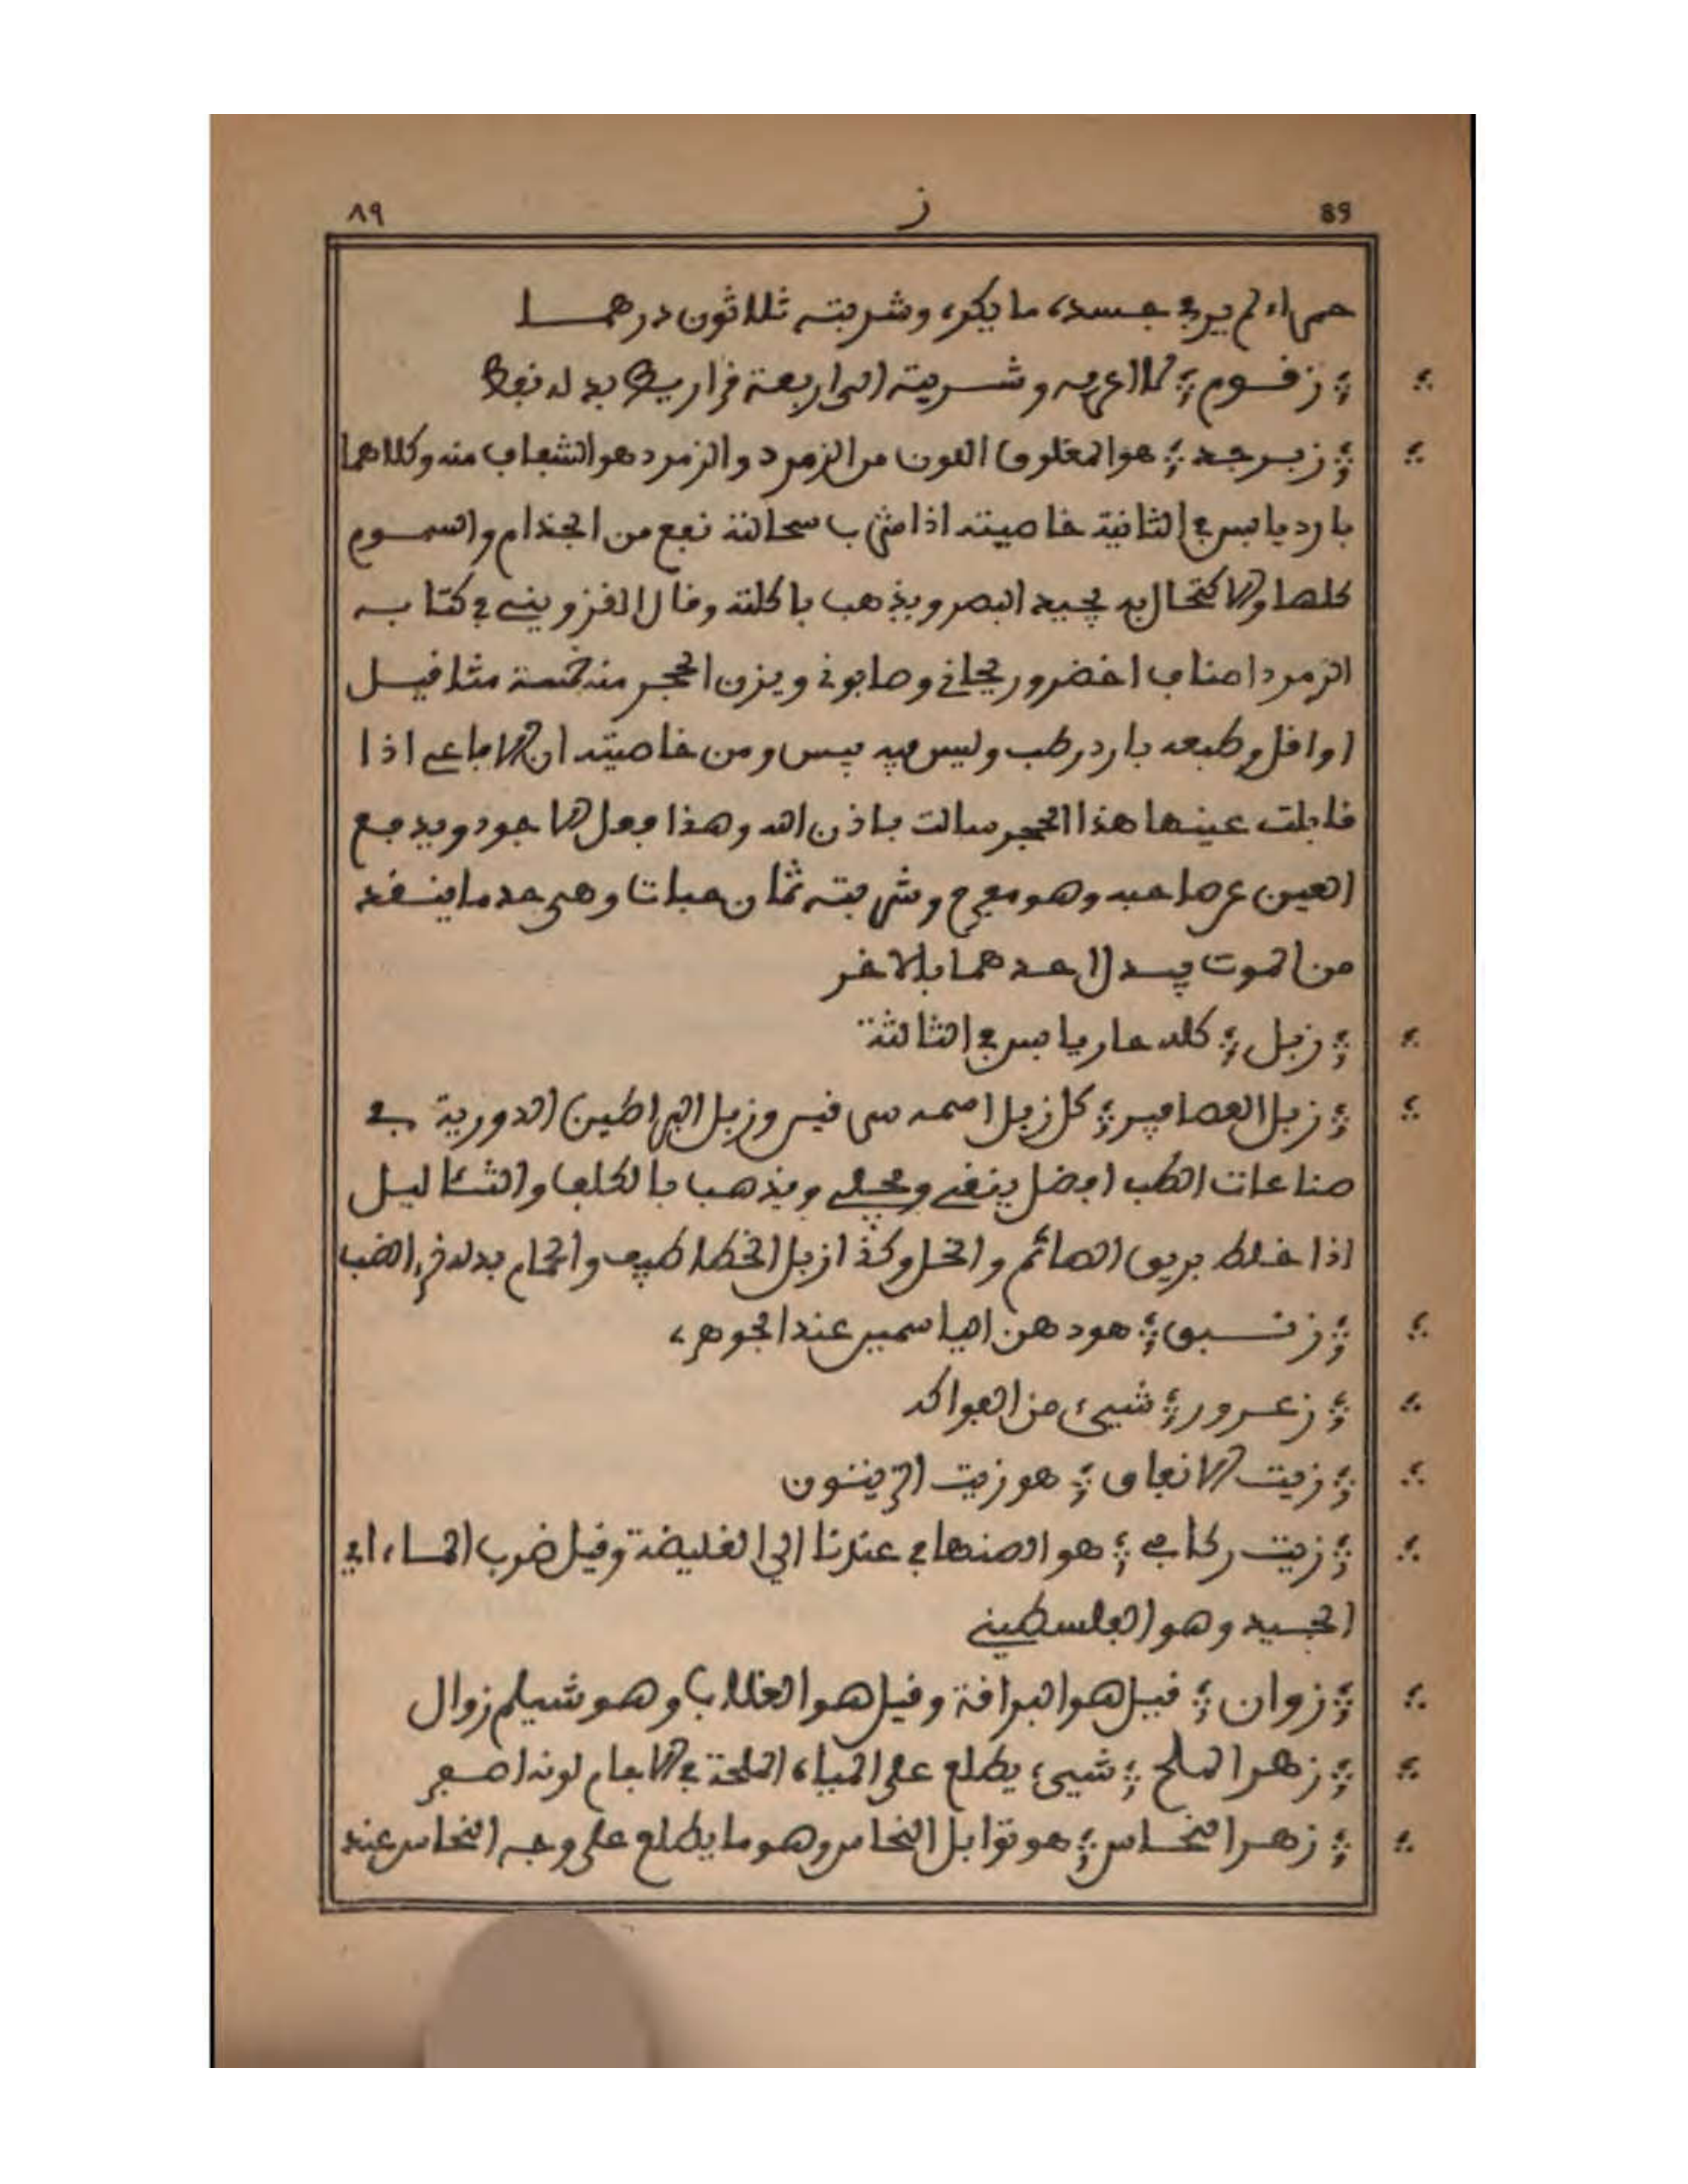 ٨٩ ز 89
حمراء لم ير في جسده ما يكره وشربته ثلاثون درهما
؛ زقوم ؛ لا اعرفه وشربته الى اربعة قراريط بدله نفط
؛ زبرجد ؛ هو المغلوق اللون من الزمرد والزمرد هو الشفاف منه وكلاهما
بارد يابس في الثانية خاصيته اذا شرب سحالته نفع من الجذام والسموم
كلها والاكتحال به يحيد البصر ويذهب باكلته وقال القزويني في كتابه
الزمرد اصناف اخضر وريحاني وصابوني ويزن الحجر منه خمسة مثاقيل
او اقل وطبعه بارد رطب وليس فيه يبس ومن خاصيته ان الافاعي اذا
قابلت عينها هذا الحجر سالت باذن الله وهذا فعل الاجود ويدفع
العين عن صاحبه وهو مفرح وشربته ثمان حبات وهي حد ما ينقذ
من الموت يبدل احدهما بالاخر
؛ زبل ؛ كله حار يابس في الثالثة
؛ زبل العصافير ؛ كل زبل اسمه سي فيس وزبل البراطين الدورية في
صناعات الطب افضل ينقي ويجلي ويذهب بالكلف والثئاليل
اذا خلط بريق الصائم والخل وكذا زبل الخطاطيف والحمام بدله خرء الضب
؛ زنبق ؛ هو دهن الياسمين عند الجوهري
؛ زعرور ؛ شيئ من الفواكه
؛ زيت الانفاق ؛ هو زيت الزيتون
؛ زيت ركابي ؛ هو الصنهاجي عندنا الي الغليضة وقيل ضرب الماء اي
الجسيد وهو الفلسطيني
؛ زوان ؛ قيل هو البراقة وقيل هو الغلاب وهو شيلم زوال
؛ زهر الملح ؛ شيئ يطلع على المياه الملحة في الاجام لونه اصفر
؛ زهر النحاس ؛ هو توابل النحاس وهو ما يطلع على وجه النحاس عند